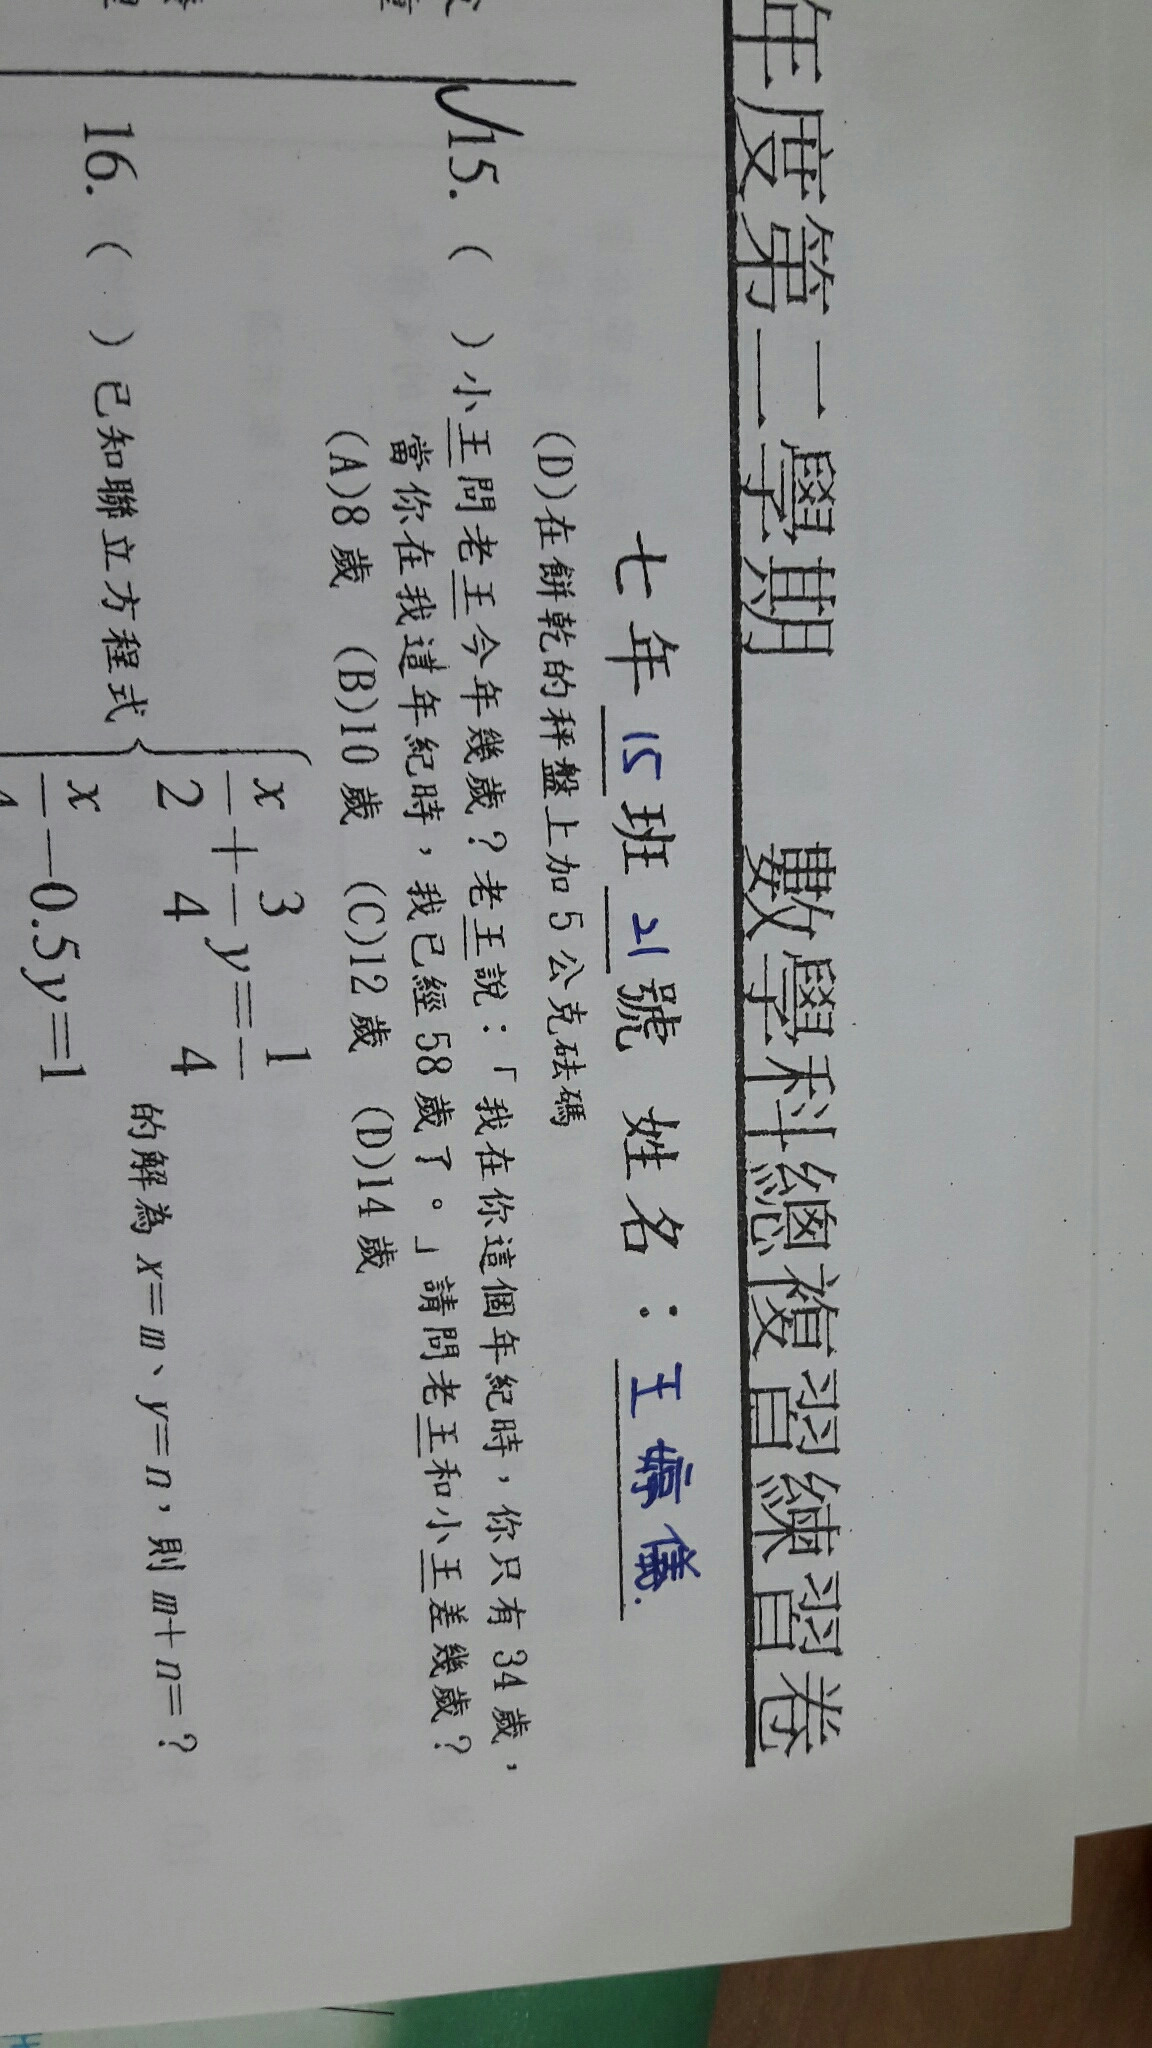 年度第二學期 數學科總複習練習卷
七年 15 班 21 號 姓名：王婷儀.
(D)在餅乾的秤盤上加 5 公克砝碼
√15. ( ) 小王問老王今年幾歲？老王說：「我在你這個年紀時，你只有 34 歲，
當你在我這年紀時，我已經 58 歲了。」請問老王和小王差幾歲？
(A)8 歲 (B)10 歲 (C)12 歲 (D)14 歲
16. ( ) 已知聯立方程式 { x/2 + 3/4 y = 1/4
x/4 − 0.5y = 1 的解為 x = m、y = n，則 m + n = ？